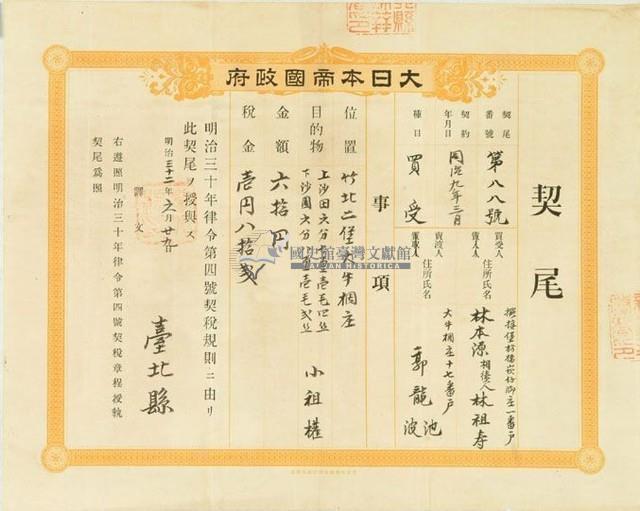 大日本帝國政府
契尾
契尾番號
第八八號
契約年月日
同治九年三月
種目
買受
買受人
住所氏名
林本源相續人林祖壽
賣渡人
住所氏名
大牛椆庄十七番戶
郭龍池
波
事項
位置
竹北二堡大牛椆庄
目的物
上沙田六分
下沙園六分
小祖權
金額
六拾円
稅金
壱円八拾
明治三十年律令第四號契稅規則ニ由リ
此契尾ノ授與ス
明治三十二年
月廿九日
譯文
臺北縣
右遵照明治三十年律令第四號契稅章程授執
契尾爲照
國史館臺灣文獻館
TAIWAN HISTORICA